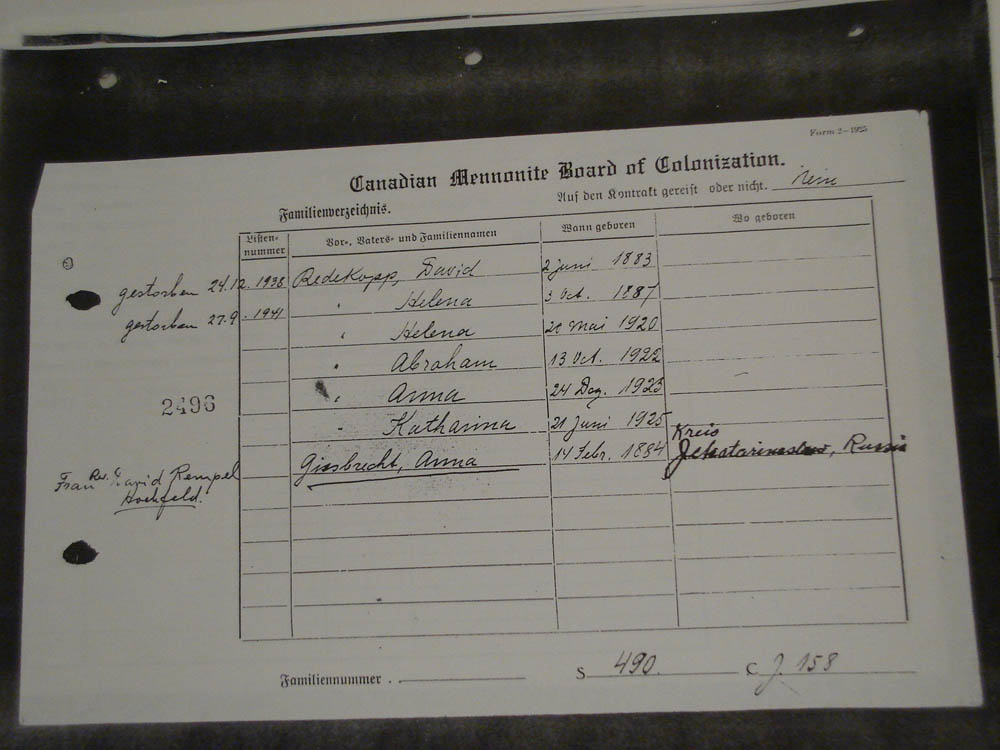 Form 2—1925
Canadian Mennonite Board of Colonization.
Familienverzeichnis. Auf den Kontrakt gereist oder nicht. Nein
Listen-nummer Vor-, Vaters- und Familiennamen Wann geboren Wo geboren
gestorben 24.12.1938 Redekopp, David 2 Juni 1883
gestorben 27.9.1941 " Helena 3 Oct. 1887
" Helena 20 Mai 1920
" Abraham 13 Oct. 1922
" Anna 24 Dez. 1923
2496
" Katharina 21 Juni 1925
Giesbrecht, Anna 14 Febr. 1884 Kreis Jekatarinoslaw, Russia
Frau Rev. David Rempel
Hochfeld.
Familiennummer. S 490. C J. 158